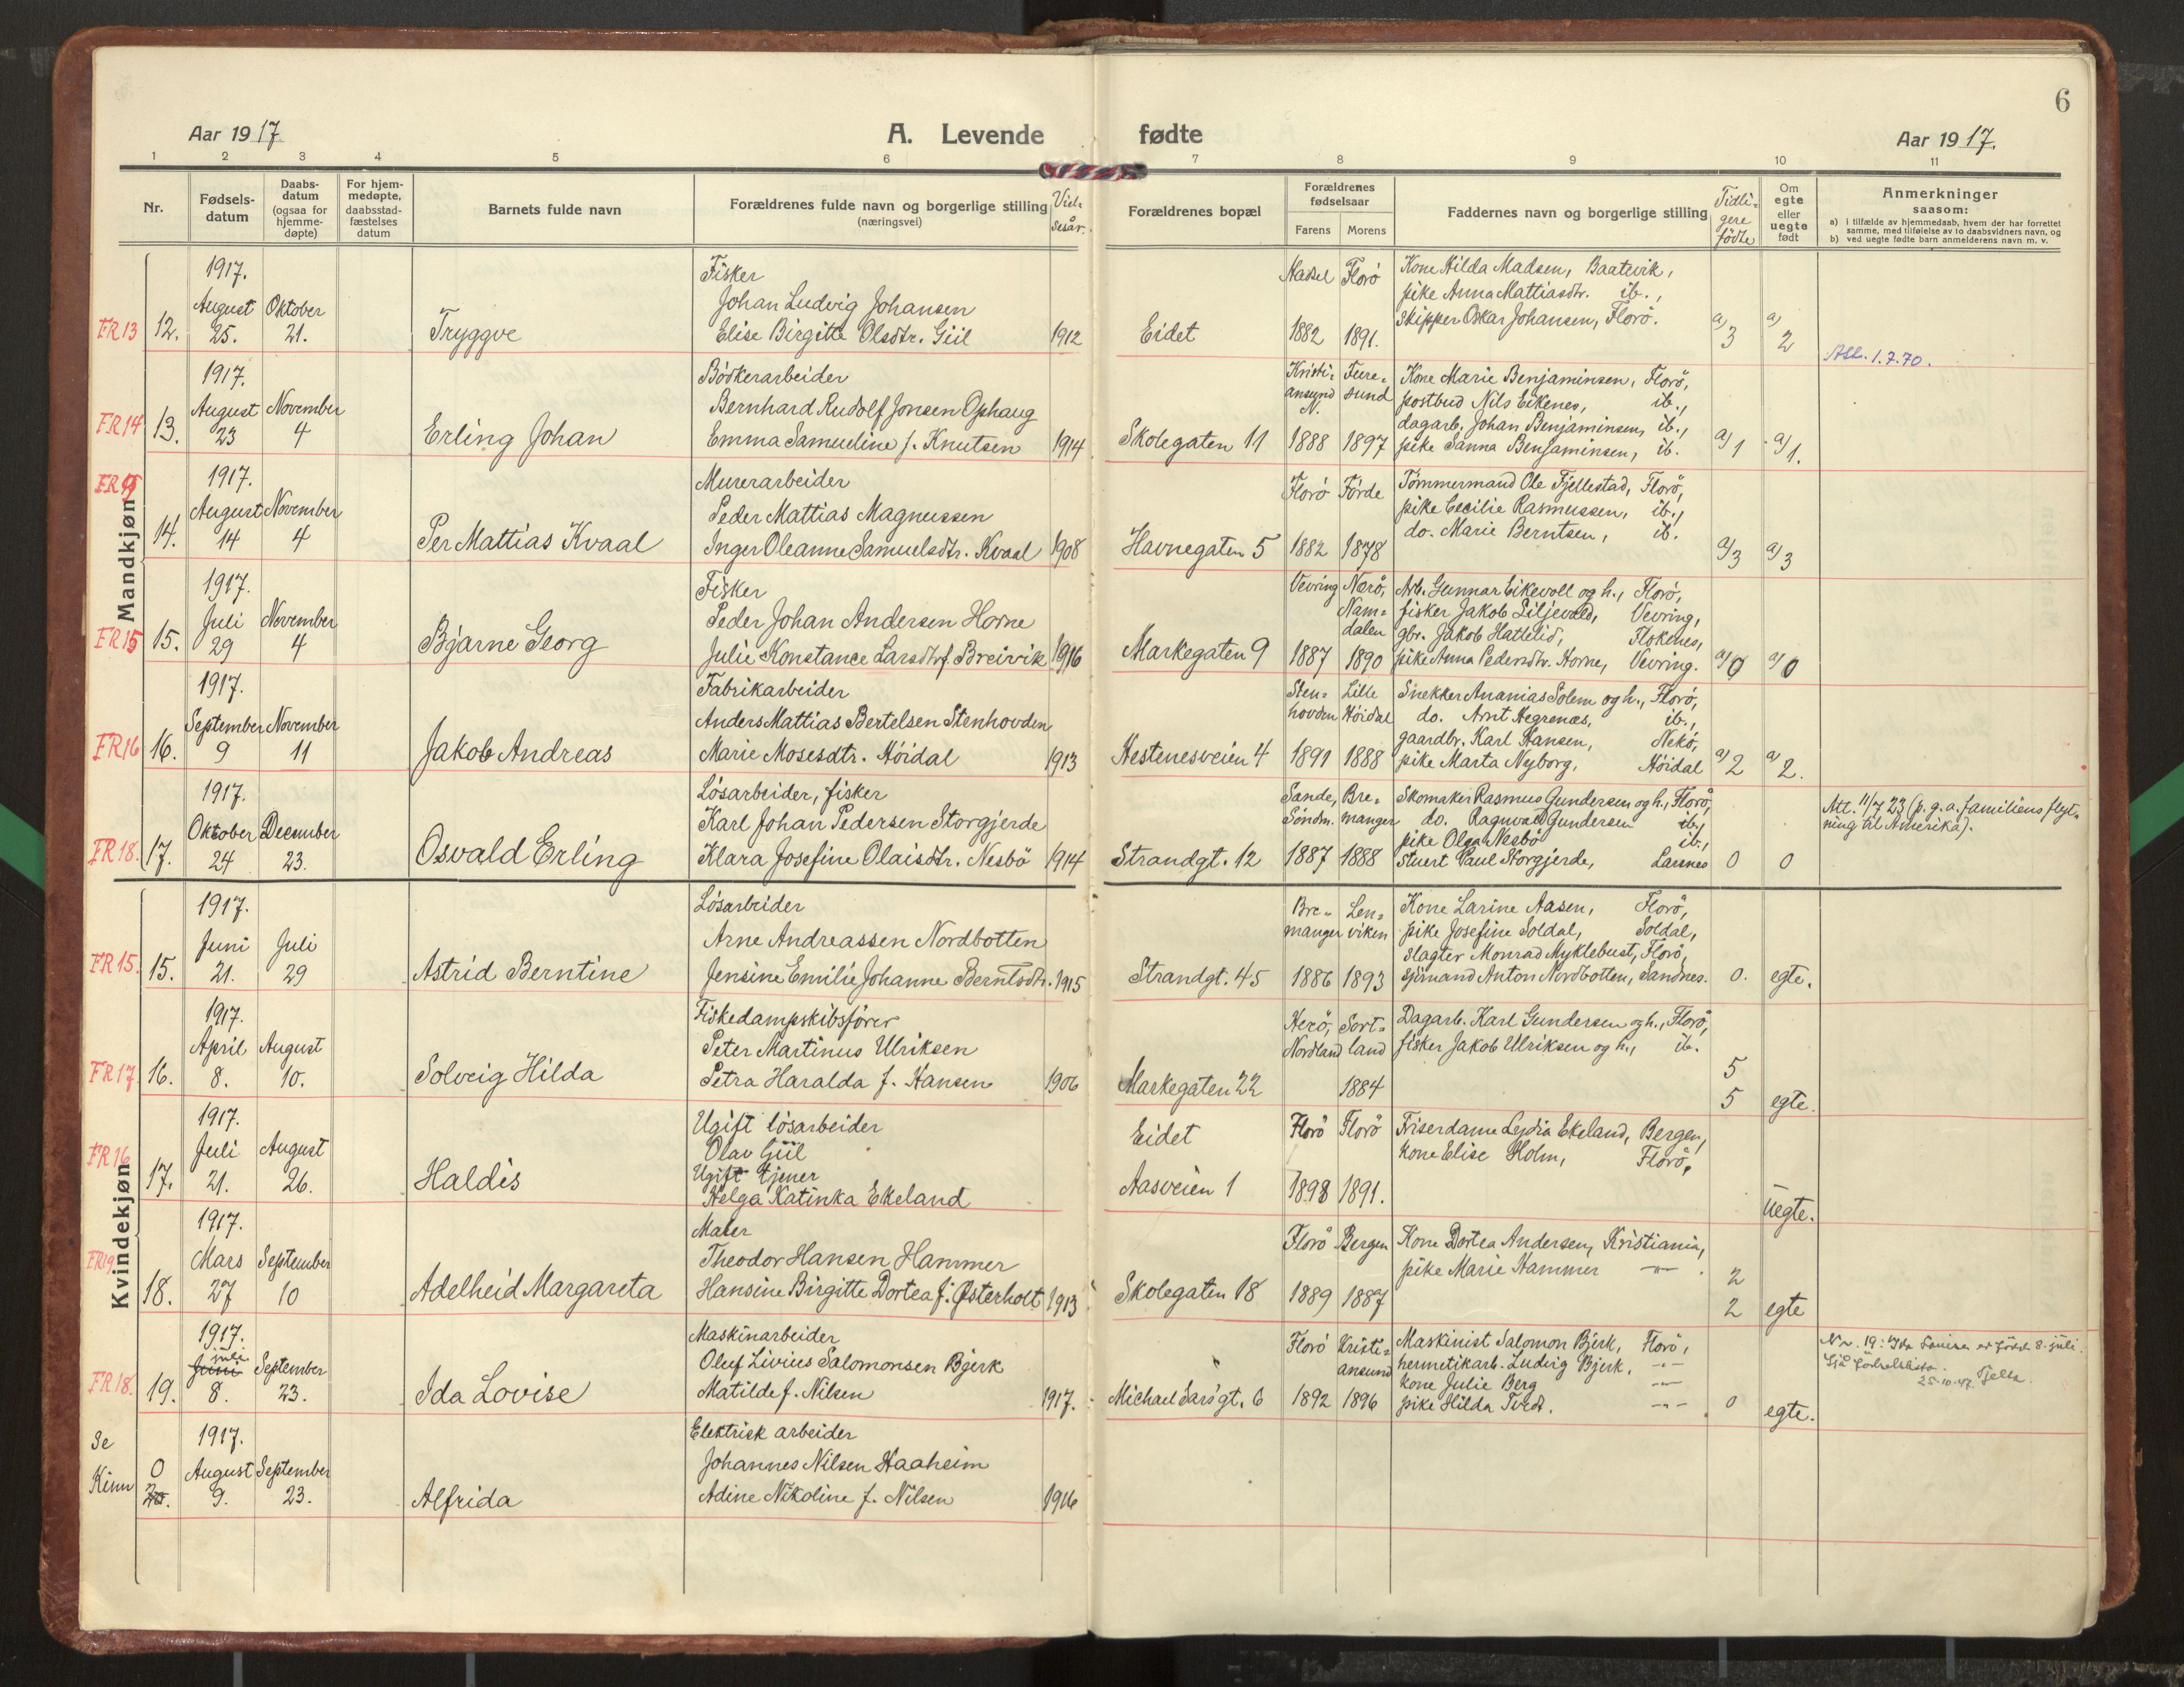 6
Aar 1917
A. Levende fødte
Aar 1917.
1 2 3 4 5 6 7 8 9 10 11
Nr.
Fødsels-
datum
Daabs-
datum
(ogsaa for
hjemme-
døpte)
For hjem-
medøpte,
daabsstad-
fæstelses
datum
Barnets fulde navn
Forældrenes fulde navn og borgerlige stilling
(næringsvei)
Viel-
sesår.
Forældrenes bopæl
Forældrenes
fødselsaar
Farens Morens
Faddernes navn og borgerlige stilling
Tidli-
gere
fødte
Om
egte
eller
uegte
født
Anmerkninger
saasom:
a) i tilfælde av hjemmedaab, hvem der har forrettet
samme, med tilføielse av to daabsvidners navn, og
b) ved uegte fødte barn anmelderens navn m. v.
Mandkjøn
FR13 12.
1917.
August 25.
Oktober 21.
Tryggve
Fisker
Johan Ludvig Johansen
Elise Birgitte Olsdtr. Giil 1912
Eidet
Florö
1882 1891.
Kone Hilda Madsen, Baatevik,
pike Anna Mattiasdtr. ib.,
Skipper Oskar Johansen, Florö.
a) 3 a) 2
1.7.70.
FR14 13.
1917.
August 23
November 4
Erling Johan
Bödkerarbeider
Bernhard Rudolf Jonsen Ophaug
Emma Samueline f. Knutsen 1914
Skolegaten 11
Kristi-
ansund
N.
sund
1888 1897
Kone Marie Benjaminsen, Florö,
postbud Nils Eikenes, ib.,
dagarb. Johan Benjaminsen, ib.,
pike Sanna Benjaminsen, ib.
a) 1 a) 1.
14.
1917.
August 14
November 4
Per Mattias Kvaal
Murerarbeider
Peder Mattias Magnussen
Inger Oleanne Samuelsdtr. Kvaal 1908
Havnegaten 5
Florö Förde
1882 1878
Tömmermand Ole Fjellestad, Florö,
pike Cecilie Rasmussen, ib.,
do. Marie Berntsen, ib.
a) 3 a) 3
FR15 15.
1917.
Juli 29
November 4
Bjarne Georg
Fisker
Peder Johan Andersen Horne
Julie Konstance Larsdtr f. Breivik 1916
Markegaten 9
Vevring Nærö,
Nam-
dalen
1887 1890
Arb. Gunnar Eikevoll og h., Florö,
fisker Jakob Liljevold, Vevring,
gbr. Jakob Hattelid, Flokenes,
pike Anna Pedersdtr. Horne, Vevring.
a) 0 a) 0
FR16 16.
1917.
September 9
November 11
Jakob Andreas
Fabrikarbeider
Anders Mattias Bertelsen Stenhovden
Marie Mosesdtr. Höidal 1913
Hestenesveien 4
Sten-
hovden
Lille
Höidal
1891 1888
Snekker Ananias Solem og h., Florö,
do. Arnt Hegrenæs, ib.,
gaardbr. Karl Hansen, Nekö,
pike Marta Nyborg, Höidal
a) 2 a) 2.
FR18. 17.
1917.
Oktober 24
December 23.
Osvald Erling
Lösarbeider, fisker
Karl Johan Pedersen Storgjerde
Klara Josefine Olaisdtr. Nesbö 1914
Strandgt. 12
Sande,
Söndm.
Bre-
manger
1887 1888
Skomaker Rasmus Gundersen og h., Florö,
do. Ragnvald Gundersen ib.,
pike Olga Nesbö ib.,
Stuert Paul Storgjerde, Larsnes
0 0
Att. 11/7 23 (p. g. a. familiens flyt-
ning til Amerika).
Kvindekjøn
FR15. 15.
1917.
Juni 21.
Juli 29
Astrid Berntine
Lösarbeider
Arne Andreassen Nordbotten
Jensine Emilie Johanne Berntsdtr. 1915
Strandgt. 45
Bre-
manger
Len-
viken
1886 1893
Kone Larine Aasen, Florö,
pike Josefine Soldal, Soldal,
Slagter Monrad Myklebust, Florö,
sjömand Anton Nordbotten, Sandnes.
0. egte.
FR17 16.
1917.
April 8.
August 10.
Solveig Hilda
Fiskedampskibsförer
Peter Martinus Ulriksen
Petra Haralda f. Hansen 1906
Markegaten 22
Herö,
Nordland
Sort-
land
1884
Dagarb. Karl Gundersen og h., Florö,
fisker Jakob Ulriksen og h., ib.
5
5 egte.
FR16 17.
1917.
Juli 21.
August 26.
Haldis
Ugift lösarbeider
Olav Giil
Ugift tjener
Helga Katinka Ekeland
Eidet
Aasveien 1
Florö Florö
1898 1891.
Friserdame Lydia Ekeland, Bergen,
Kone Elise Holm, Florö.
Uegte.
FR19 18.
1917.
Mars 27
September 10
Adelheid Margareta
Maler
Theodor Hansen Hammer
Hansine Birgitte Dortea f. Østerholt 1913
Skolegaten 18
Florö Bergen
1889 1887
Kone Dortea Andersen, Kristiania,
pike Marie Hammer -"-.
2
2 egte
FR18. 19.
1917.
Juni
juli
8.
September 23.
Ida Lovise
Maskinarbeider
Oluf Livius Salomonsen Bjerk
Matilde f. Nilsen 1917.
Michael Sars gt. 6
Florö Kristi-
ansund
1892 1896
Maskinist Salomon Bjerk, Florö,
hermetikarb. Ludvig Bjerk, -"-
Kone Julie Berg -"-
pike Hilda -"-
0 egte.
Nr. 19: Ida Louise er född 8. juli.
Sjå födselslista.
25-10-47.
Se
Kinn
0
20.
1917.
August 9.
September 23.
Alfrida
Elektrisk arbeider
Johannes Nilsen Haaheim
Adine Nikoline f. Nilsen 1916